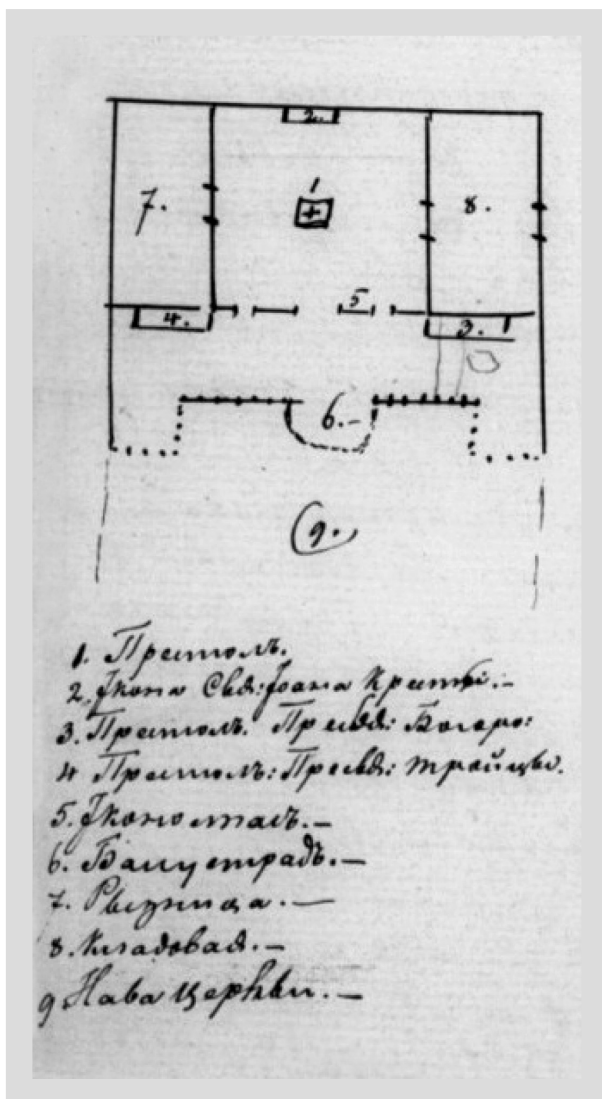 2.
1
7.
8.
5
4.
3.
6.-
9.
1. Престолъ.
2. Ікона Свя: Іоана Крести: -
3. Престолъ. Пресвя: Богоро:
4 Престолъ: Пресвя: Тройцы.
5. Іконосталъ. -
6. Балустрадъ. -
7. Рызница. -
8. Кладовая. -
9 Нава Церкви. -